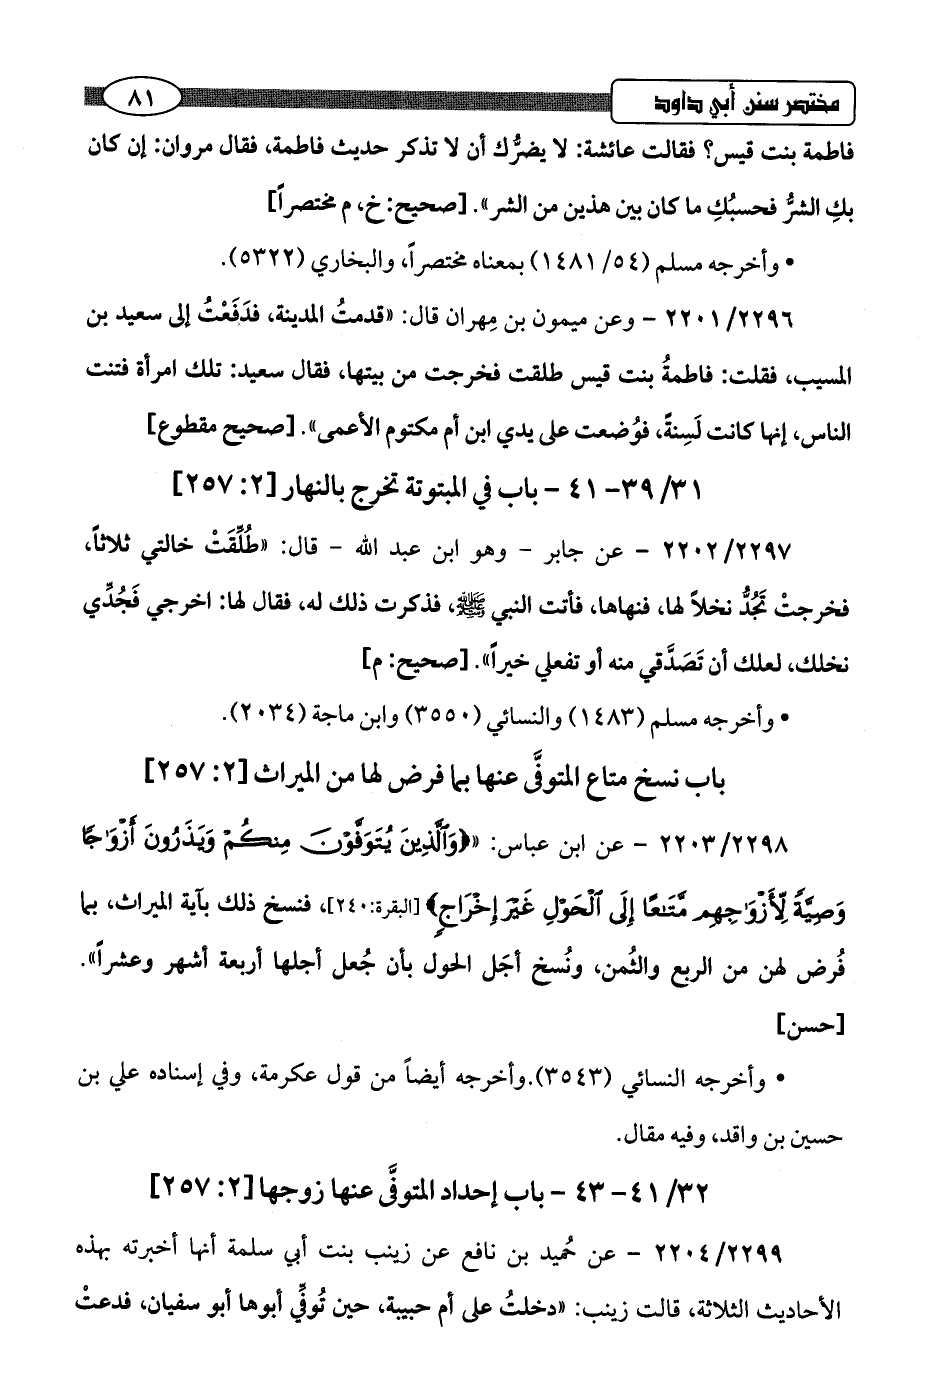 مختصر سنن أبي داود ٨١
فاطمة بنت قيس؟ فقالت عائشة: لا يضرُّك أن لا تذكر حديث فاطمة، فقال مروان: إن كان
بكِ الشرُّ فحسبُكِ ما كان بين هذين من الشر». [صحيح: خ، م مختصراً]
• وأخرجه مسلم (٥٤/ ١٤٨١) بمعناه مختصراً، والبخاري (٥٣٢٢).
٢٢٠١/٢٢٩٦ - وعن ميمون بن مِهران قال: «قدمتُ المدينة، فدَفَعْتُ إلى سعيد بن
المسيب، فقلت: فاطمةُ بنت قيس طلقت فخرجت من بيتها، فقال سعيد: تلك امرأة فتنت
الناس، إنها كانت لَسِنةً، فوُضعت على يدي ابن أم مكتوم الأعمى». [صحيح مقطوع]
٣٩/٣١- ٤١ - باب في المبتوتة تخرج بالنهار [٢: ٢٥٧]
٢٢٠٢/٢٢٩٧ - عن جابر - وهو ابن عبد الله - قال: «طُلِّقَتْ خالتي ثلاثاً،
فخرجتْ تَجُدُّ نخلاً لها، فنهاها، فأتت النبي ﷺ، فذكرت ذلك له، فقال لها: اخرجي فَجُدِّي
نخلك، لعلك أن تَصَدَّقي منه أو تفعلي خيراً». [صحيح: م]
• وأخرجه مسلم (١٤٨٣) والنسائي (٣٥٥٠) وابن ماجة (٢٠٣٤).
باب نسخ متاع المتوفَّى عنها بما فرض لها من الميراث [٢: ٢٥٧]
٢٢٠٣/٢٢٩٨ - عن ابن عباس: «﴿وَٱلَّذِينَ يُتَوَفَّوْنَ مِنكُمْ وَيَذَرُونَ أَزْوَٰجًا
وَصِيَّةً لِّأَزْوَٰجِهِم مَّتَٰعًا إِلَى ٱلْحَوْلِ غَيْرَ إِخْرَاجٍ﴾ [البقرة: ٢٤٠]، فنسخ ذلك بآية الميراث، بما
فُرض لهن من الربع والثُمن، ونُسخ أجَل الحول بأن جُعل أجلها أربعة أشهر وعشراً».
[حسن]
• وأخرجه النسائي (٣٥٤٣). وأخرجه أيضاً من قول عكرمة، وفي إسناده علي بن
حسين بن واقد، وفيه مقال.
٤١/٣٢- ٤٣ - باب إحداد المتوفَّى عنها زوجها [٢: ٢٥٧]
٢٢٠٤/٢٢٩٩ - عن حُميد بن نافع عن زينب بنت أبي سلمة أنها أخبرته بهذه
الأحاديث الثلاثة، قالت زينب: «دخلتُ على أم حبيبة، حين تُوفِّي أبوها أبو سفيان، فدعتْ